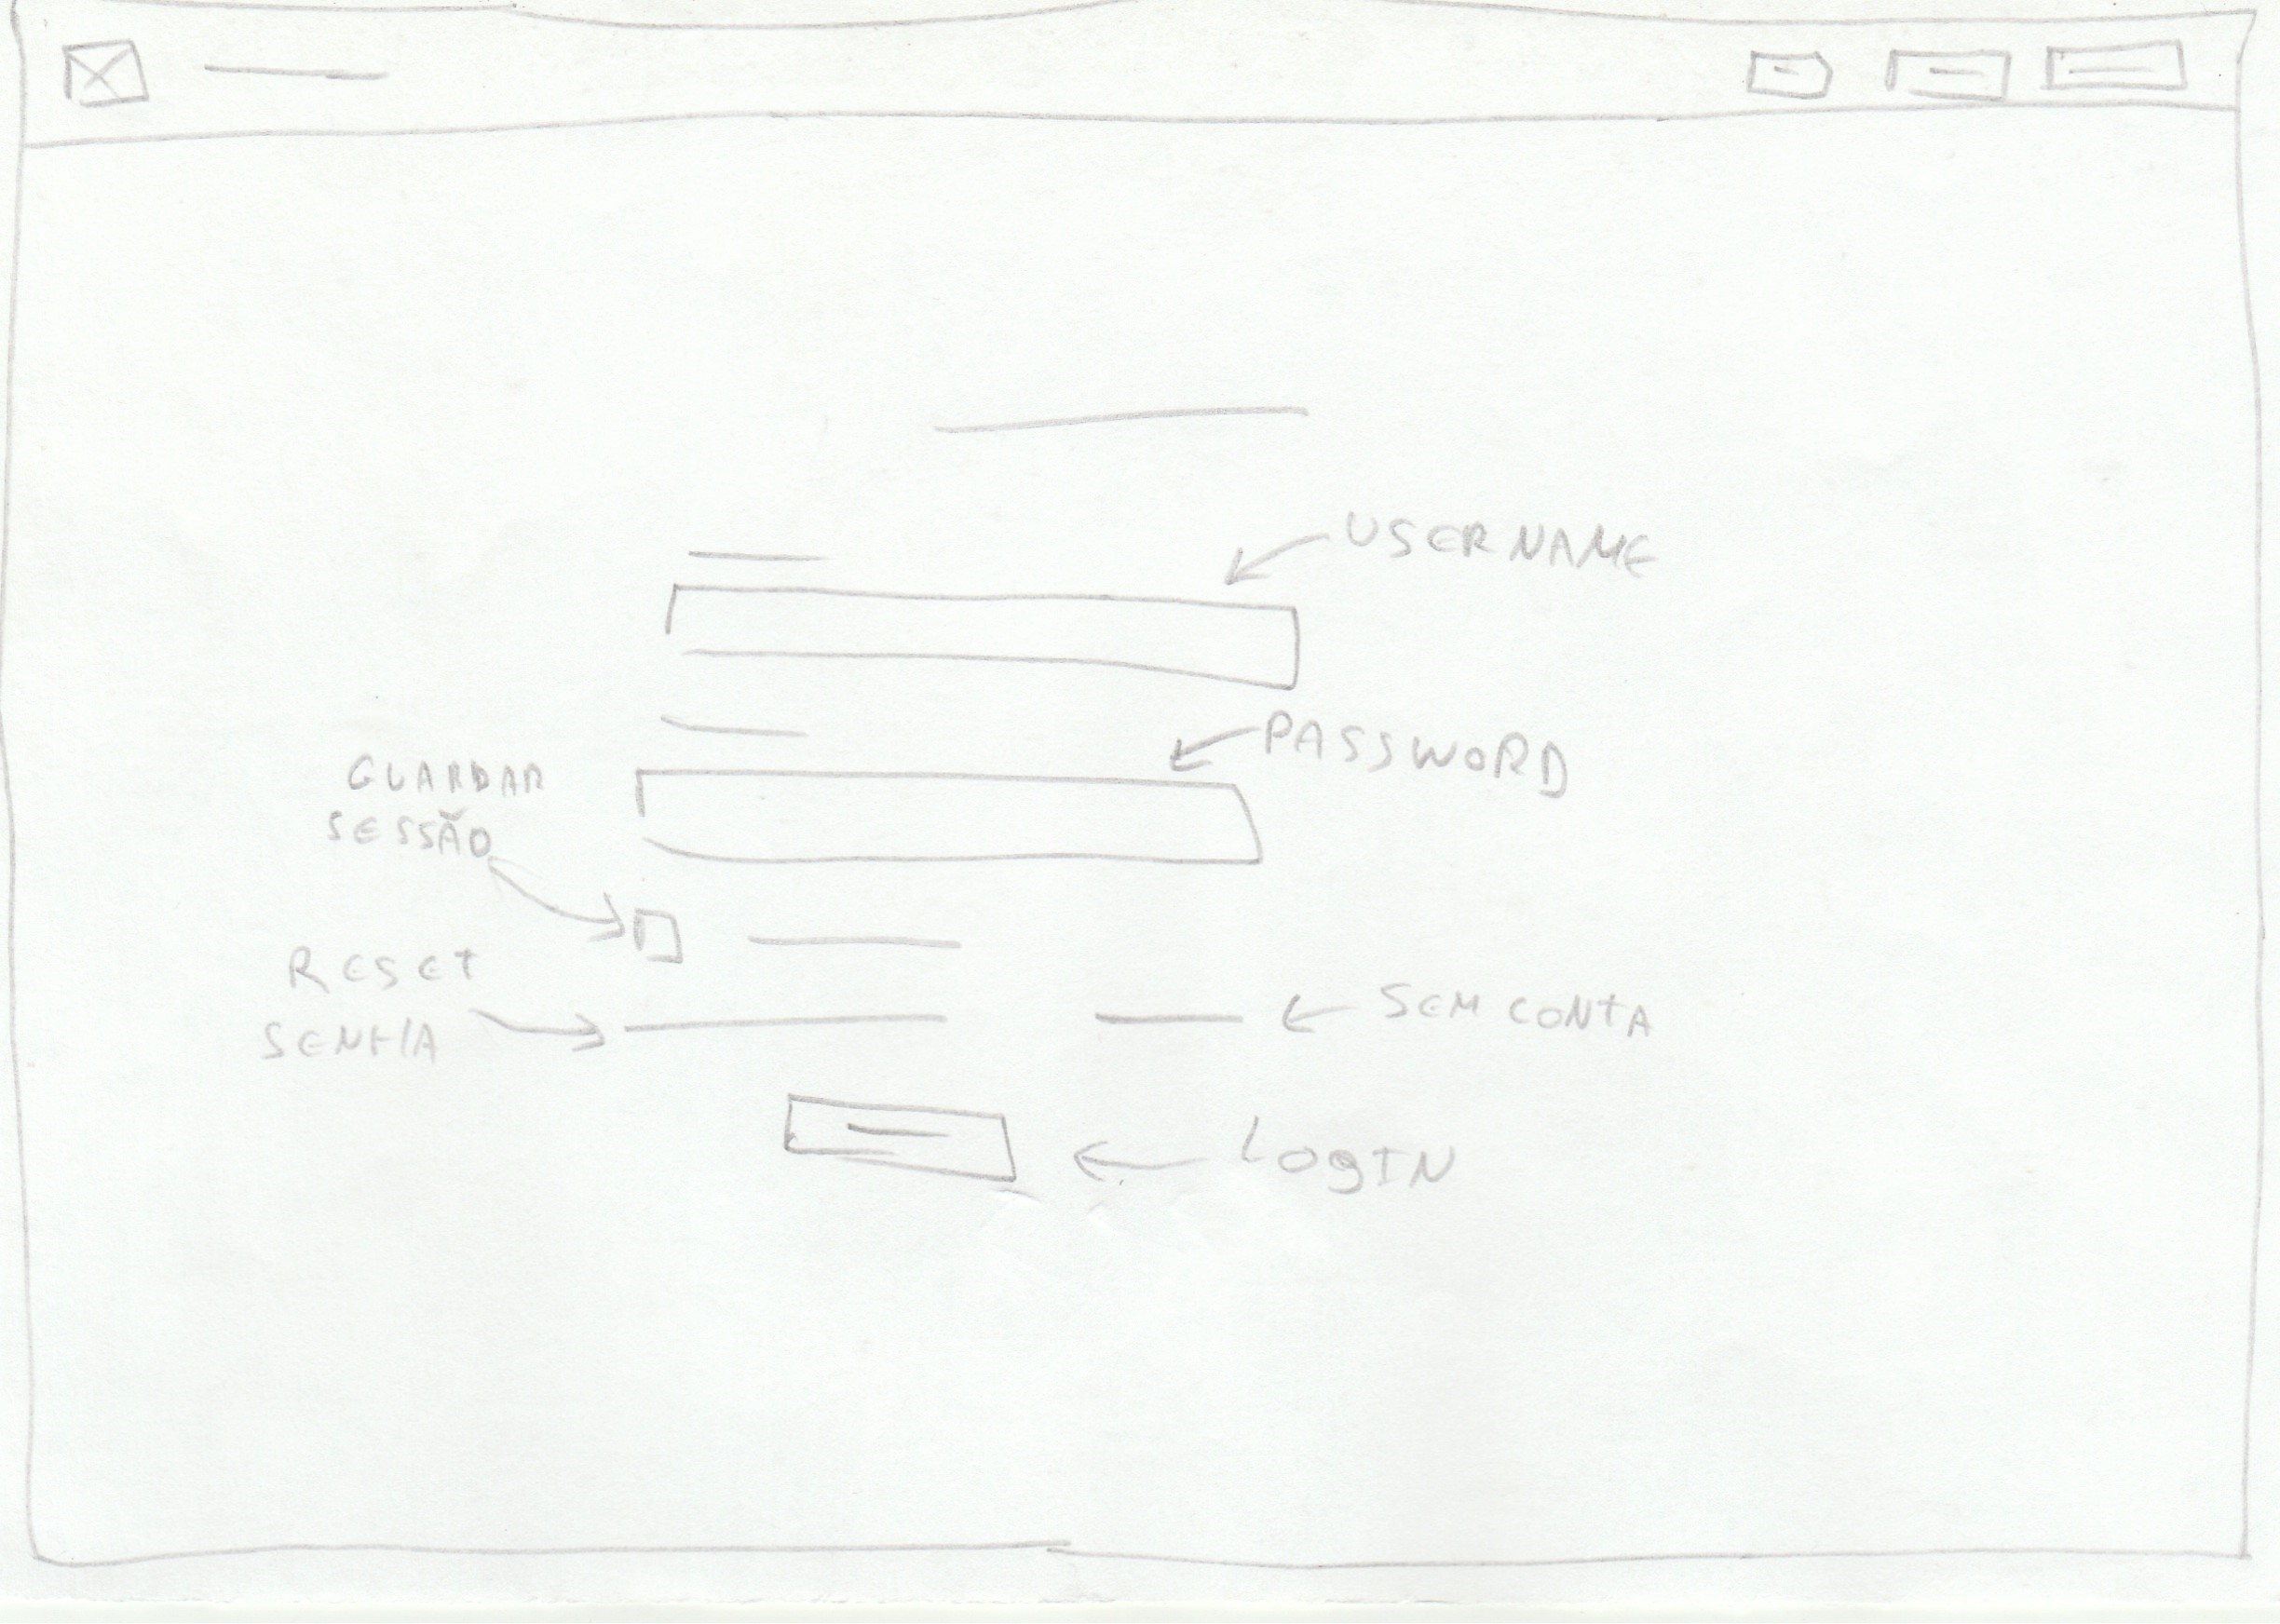 USERNAME
PASSWORD
GUARDAR
SESSÃO
RESET
SENHA
SEM CONTA
LOGIN